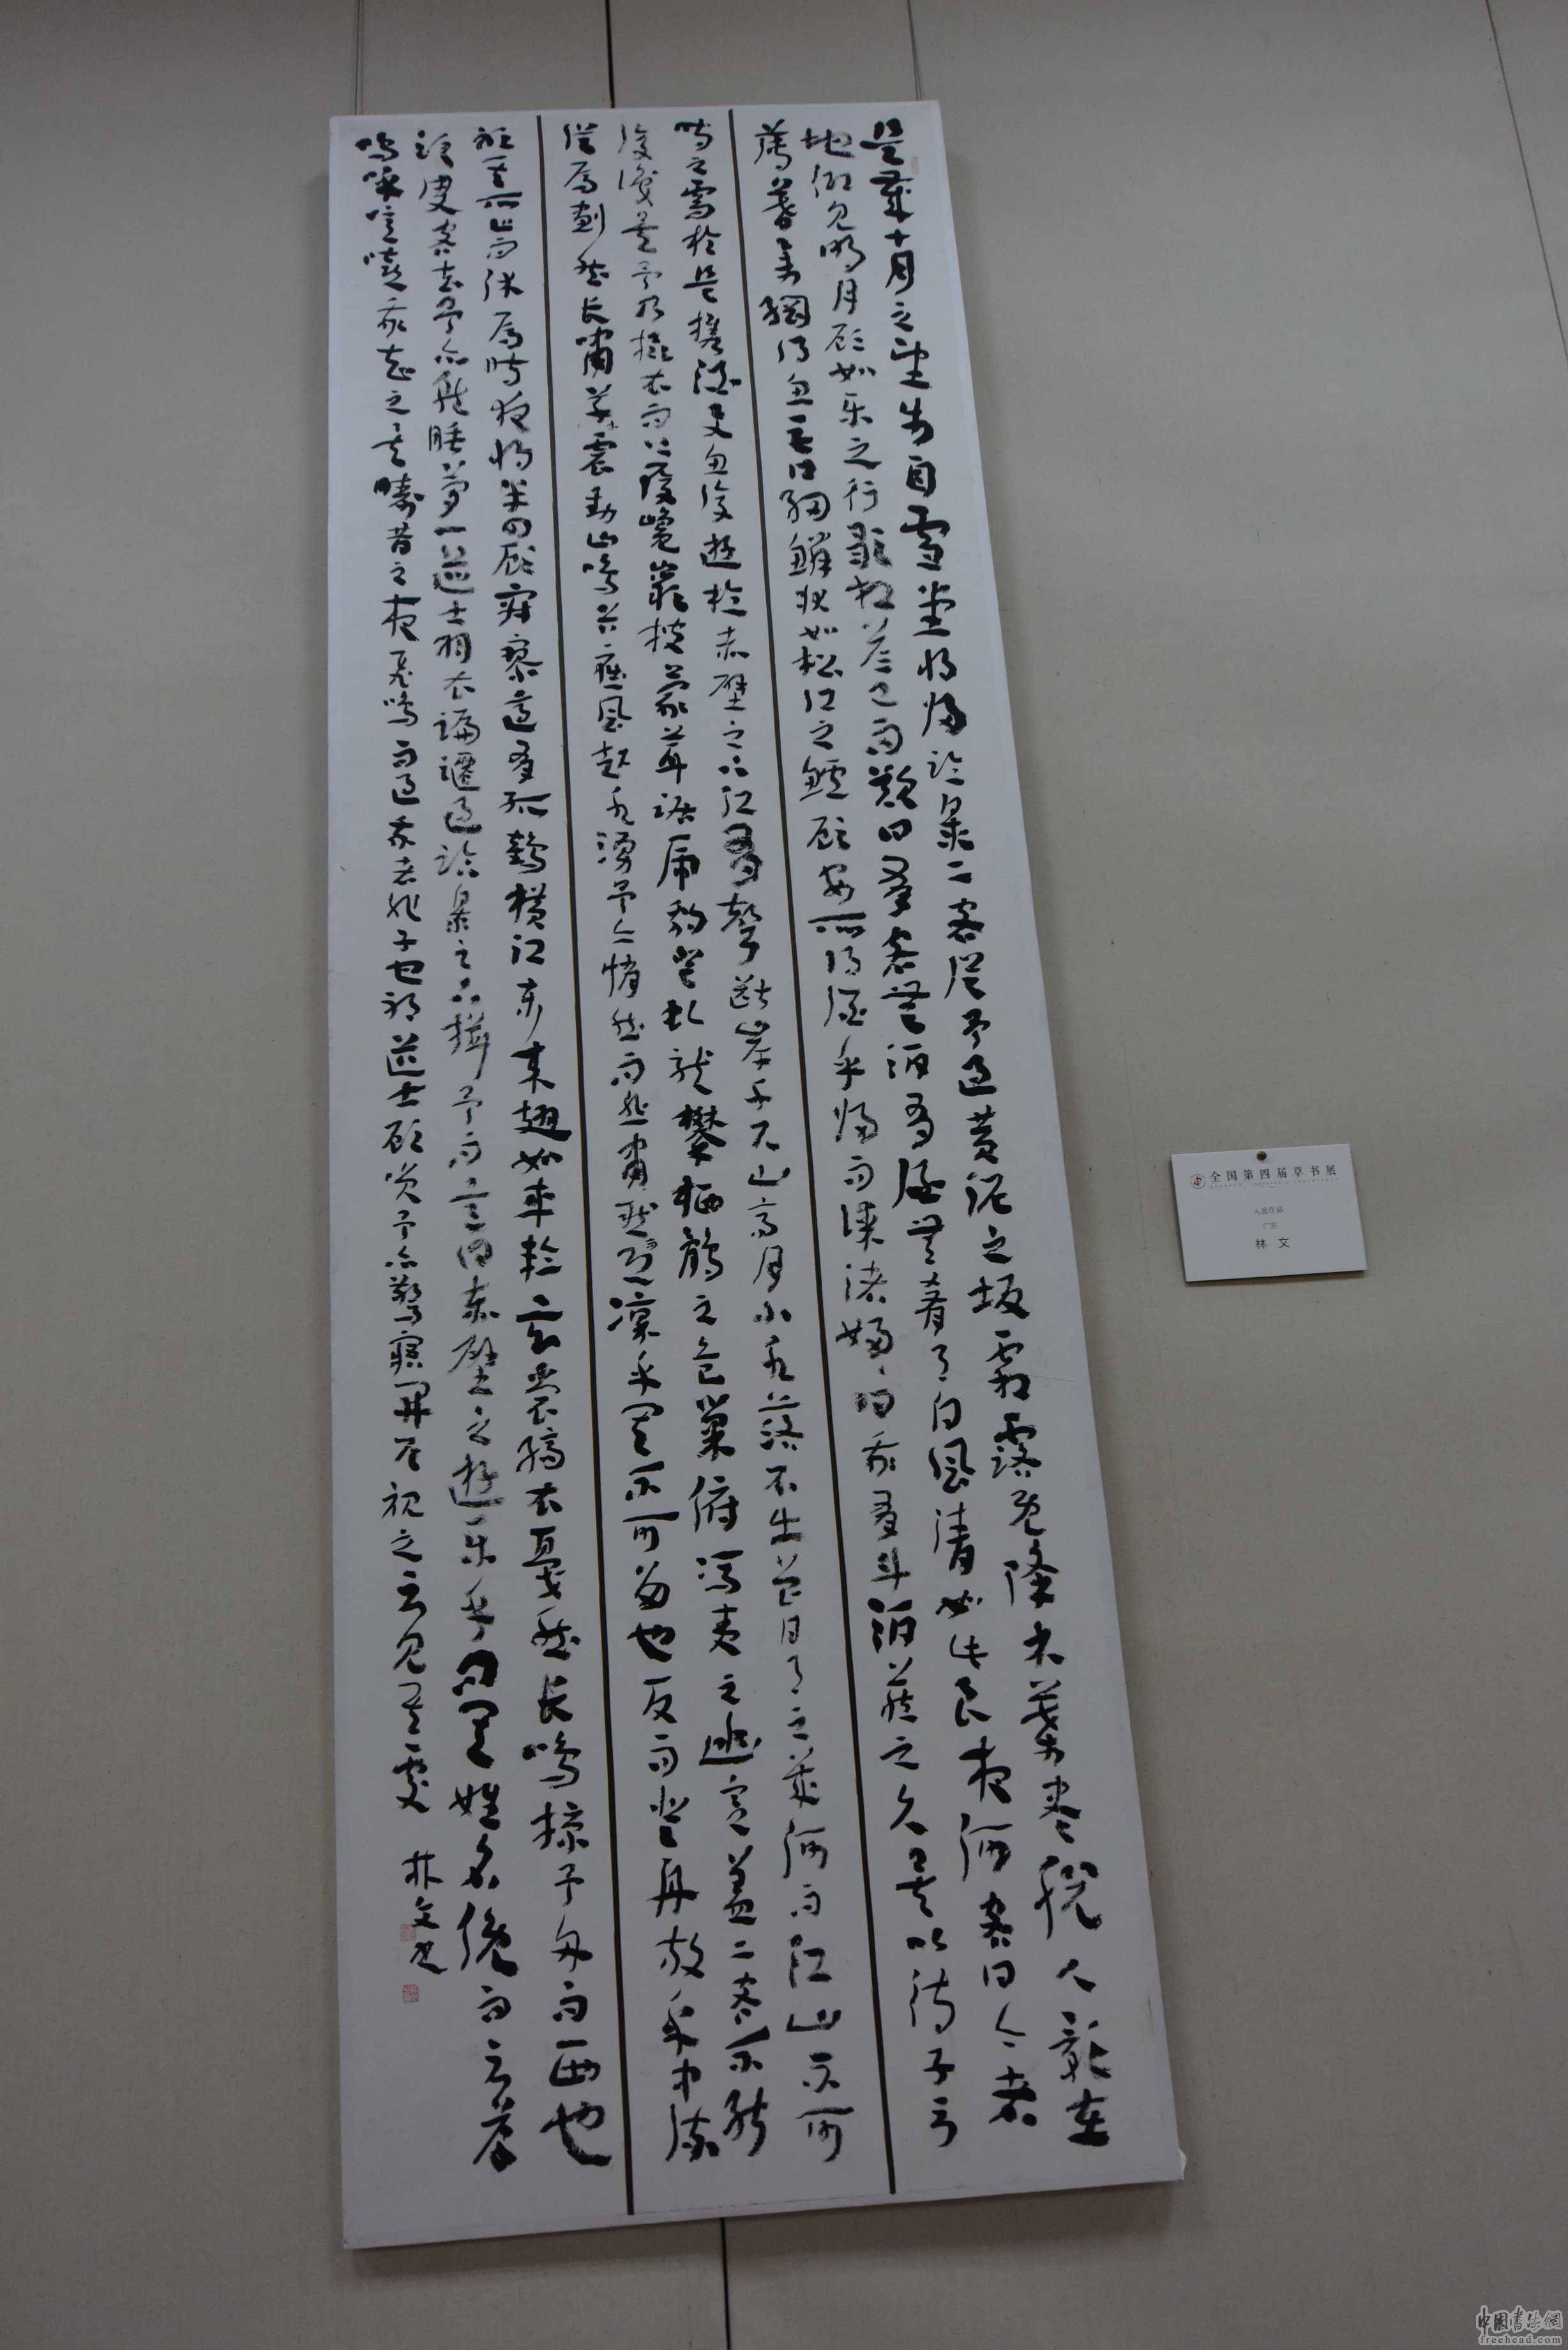 是歲十月之望步自雪堂將歸臨皋二客從予過黃泥之坂霜露既降木葉盡脫人影在
地仰見明月顧如樂之行歌相答已而歎曰有客無酒有酒無肴月白風清如此良夜何客曰今者
薄暮舉網得魚巨口細鱗狀如松江之鱸顧安所得酒乎歸而謀諸婦婦曰我有斗酒藏之久矣以待子不
時之需於是攜酒與魚復遊於赤壁之下江有聲斷岸千尺山高月小水落石出曾日月之幾何而江山不可
復識矣予乃攝衣而上履巉巖披蒙茸踞虎豹登虬龍攀栖鶻之危巢俯馮夷之幽宮蓋二客不能
從焉劃然長嘯草木震動山鳴谷應風起水湧予亦悄然而悲肅然恐凜乎其不可留也反而登舟放乎中流
聽其所止而休焉時夜將半四顧寂寥適有孤鶴橫江東來翅如車輪玄裳縞衣戛然長鳴掠予舟而西也
須臾客去予亦就睡夢一道士羽衣蹁躚過臨皋之下揖予而言曰赤壁之遊樂乎問其姓名俛而不答
嗚呼噫嘻我知之矣疇昔之夜飛鳴而過我者非子也邪道士顧笑予亦驚寤開戶視之不見其處 林文書
全国第四届草书展
入展作品
广东
林 文
中国书法网
freehead.com